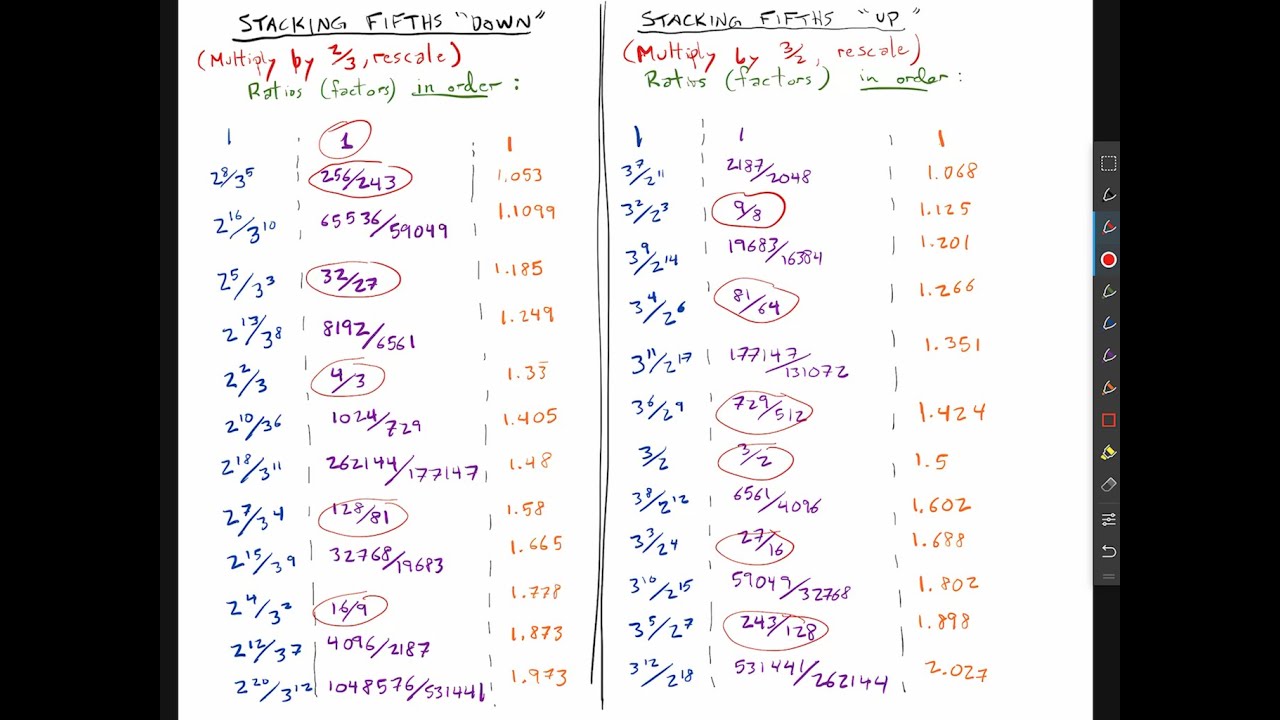 STACKING FIFTHS "DOWN"
(Multiply by 2/3, rescale)
Ratios (factors) in order :
1 1 1
2⁸/3⁵ 256/243 1.053
2¹⁶/3¹⁰ 65536/59049 1.1099
2⁵/3³ 32/27 1.185
2¹³/3⁸ 8192/6561 1.249
2²/3 4/3 1.33̅
2¹⁰/3⁶ 1024/729 1.405
2¹⁸/3¹¹ 262144/177147 1.48
2⁷/3⁴ 128/81 1.58
2¹⁵/3⁹ 32768/19683 1.665
2⁴/3² 16/9 1.778
2¹²/3⁷ 4096/2187 1.873
2²⁰/3¹² 1048576/531441 1.973
STACKING FIFTHS "UP"
(Multiply by 3/2, rescale)
Ratios (factors) in order :
1 1 1
3⁷/2¹¹ 2187/2048 1.068
3²/2³ 9/8 1.125
3⁹/2¹⁴ 19683/16384 1.201
3⁴/2⁶ 81/64 1.266
3¹¹/2¹⁷ 177147/131072 1.351
3⁶/2⁹ 729/512 1.424
3/2 3/2 1.5
3⁸/2¹² 6561/4096 1.602
3³/2⁴ 27/16 1.688
3¹⁰/2¹⁵ 59049/32768 1.802
3⁵/2⁷ 243/128 1.898
3¹²/2¹⁸ 531441/262144 2.027